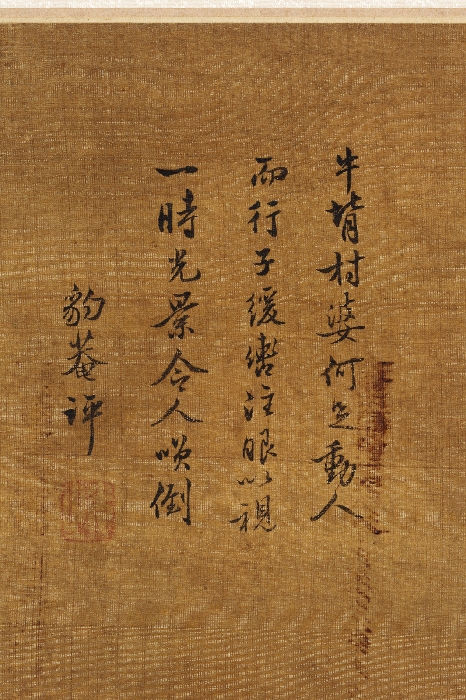 牛背村婆何足動人
而行子緩轡注眼以視
一時光景令人噗倒
豹菴評